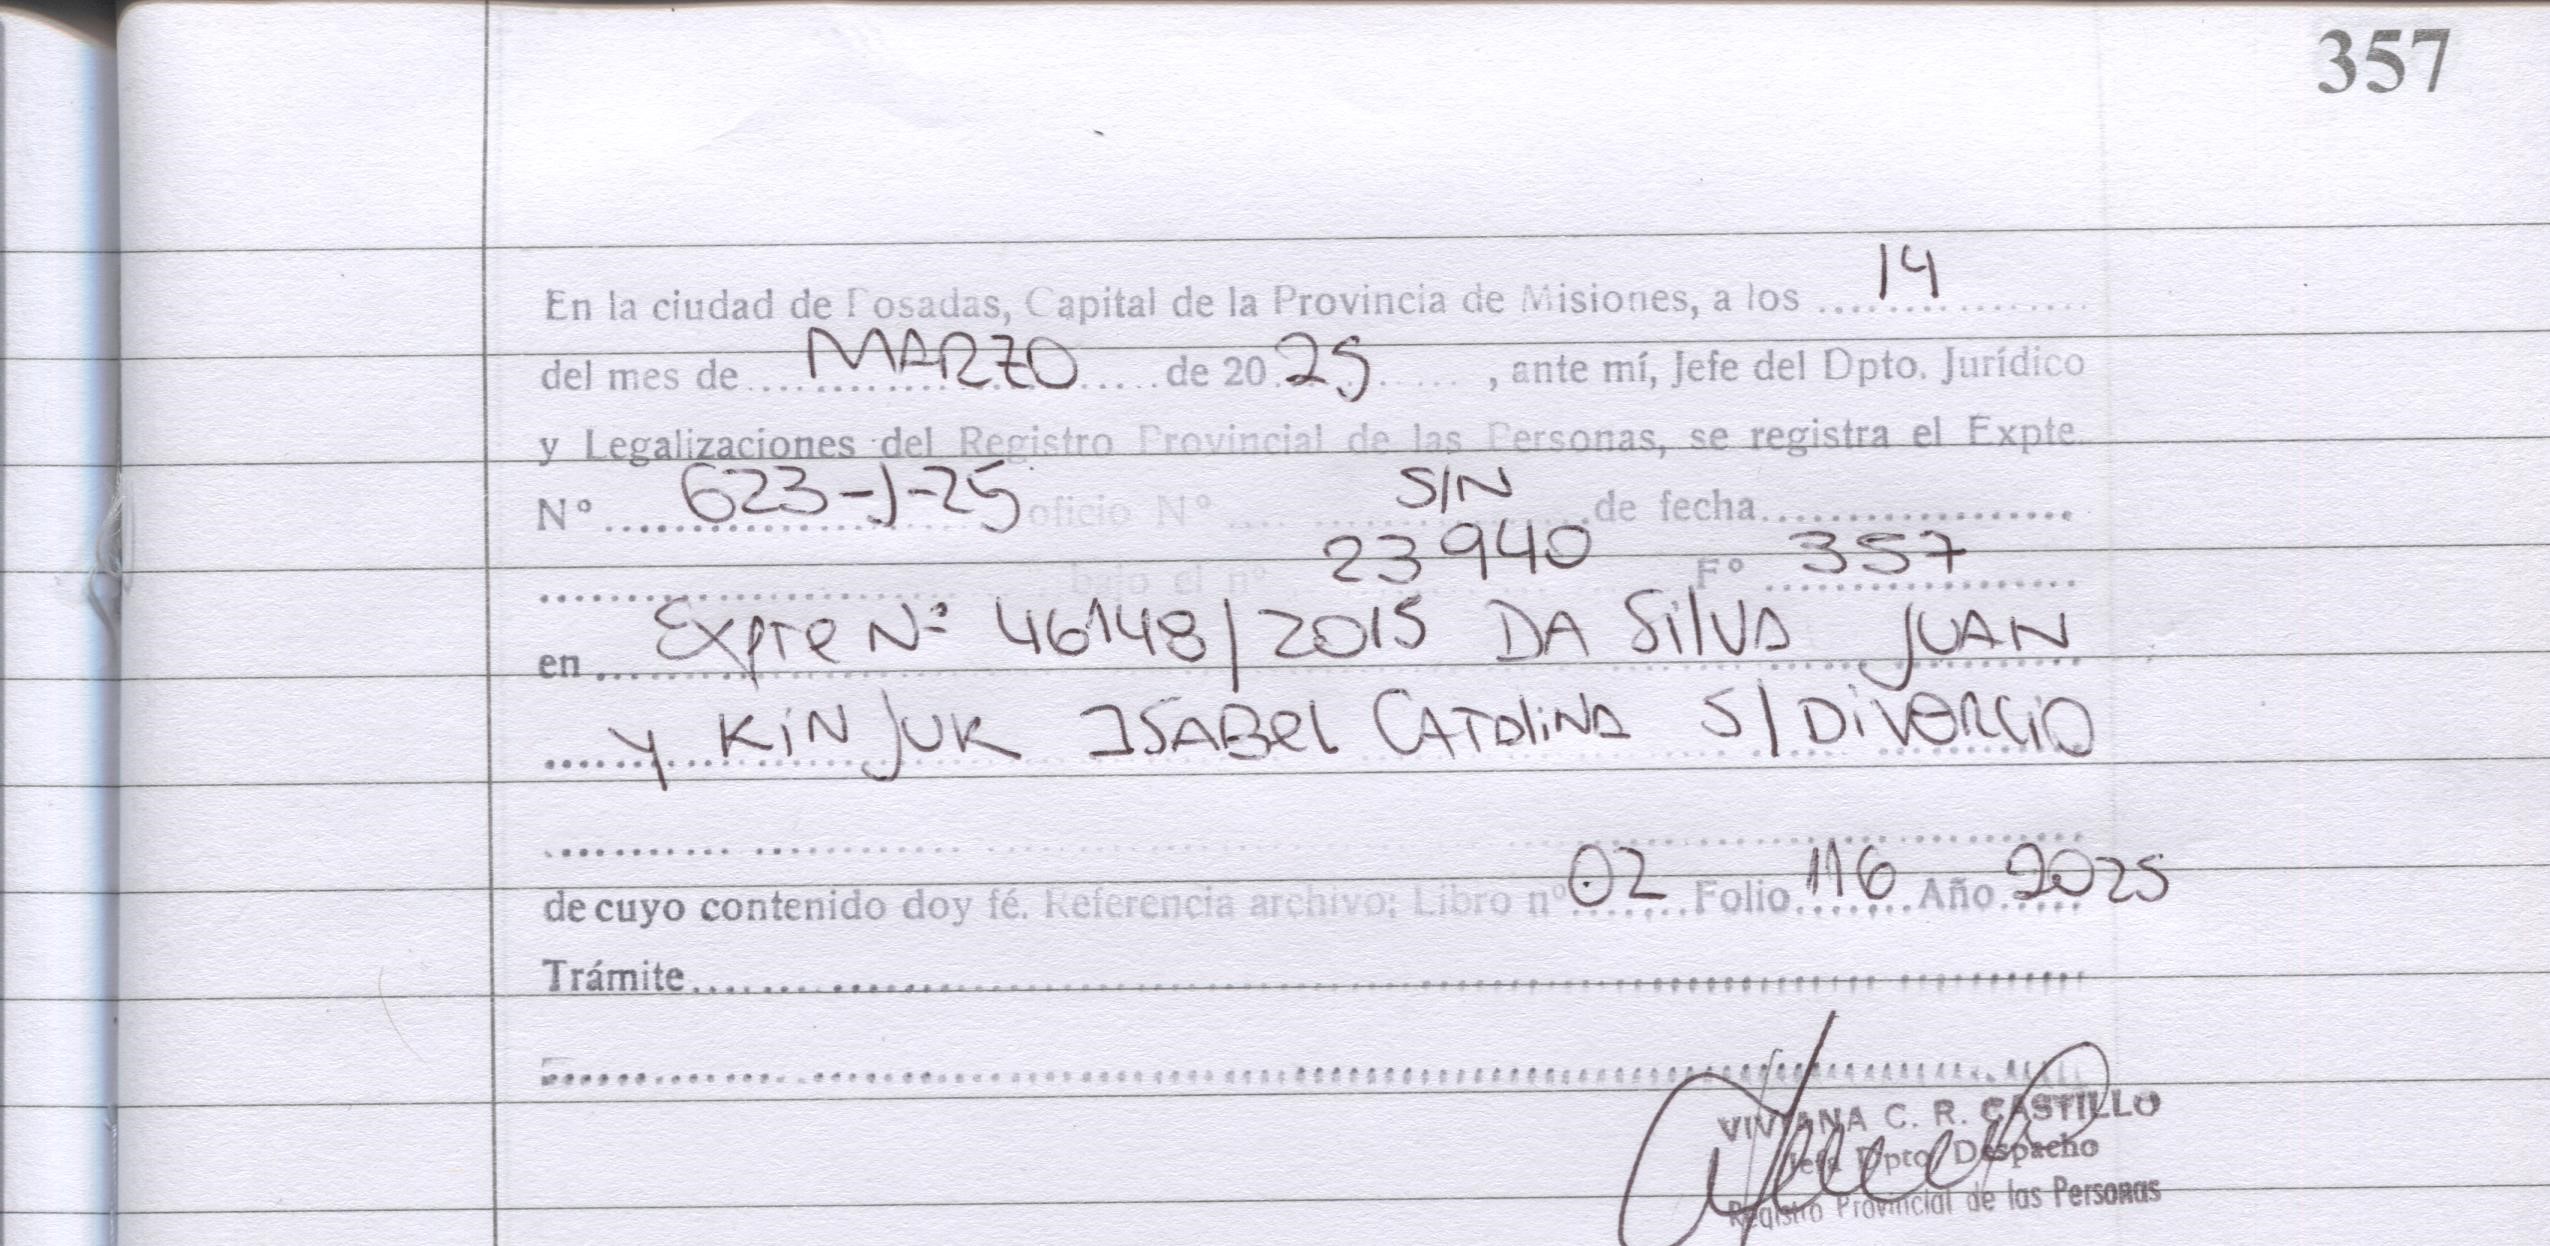 357
En la ciudad de Posadas, Capital de la Provincia de Misiones, a los ..... 14 .....
del mes de ..... MARZO ..... de 20 25 ..... , ante mí, Jefe del Dpto. Jurídico
y Legalizaciones del Registro Provincial de las Personas, se registra el Expte.
N° ..... 623-J-25 ..... oficio N° ..... S/N ..... de fecha .....
..... bajo el n° 23940 F° 357 .....
en ..... Expte N° 46148/2015 DA SilVA JUAN
..... y KiNJUK ISABel CATAliNA S/DiVORCiO
.....
de cuyo contenido doy fé. Referencia archivo: Libro n° 02 Folio 116 Año 2025
Trámite .....
.....
VIVIANA C. R. CASTILLO
Jefa Dpto Despacho
Registro Provincial de las Personas